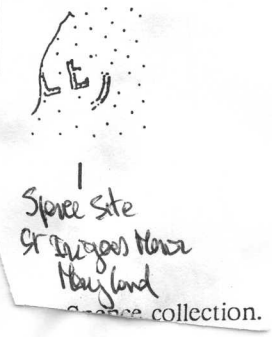 LE
Spence Site
St Inigoes Manor
Maryland
Spence collection.